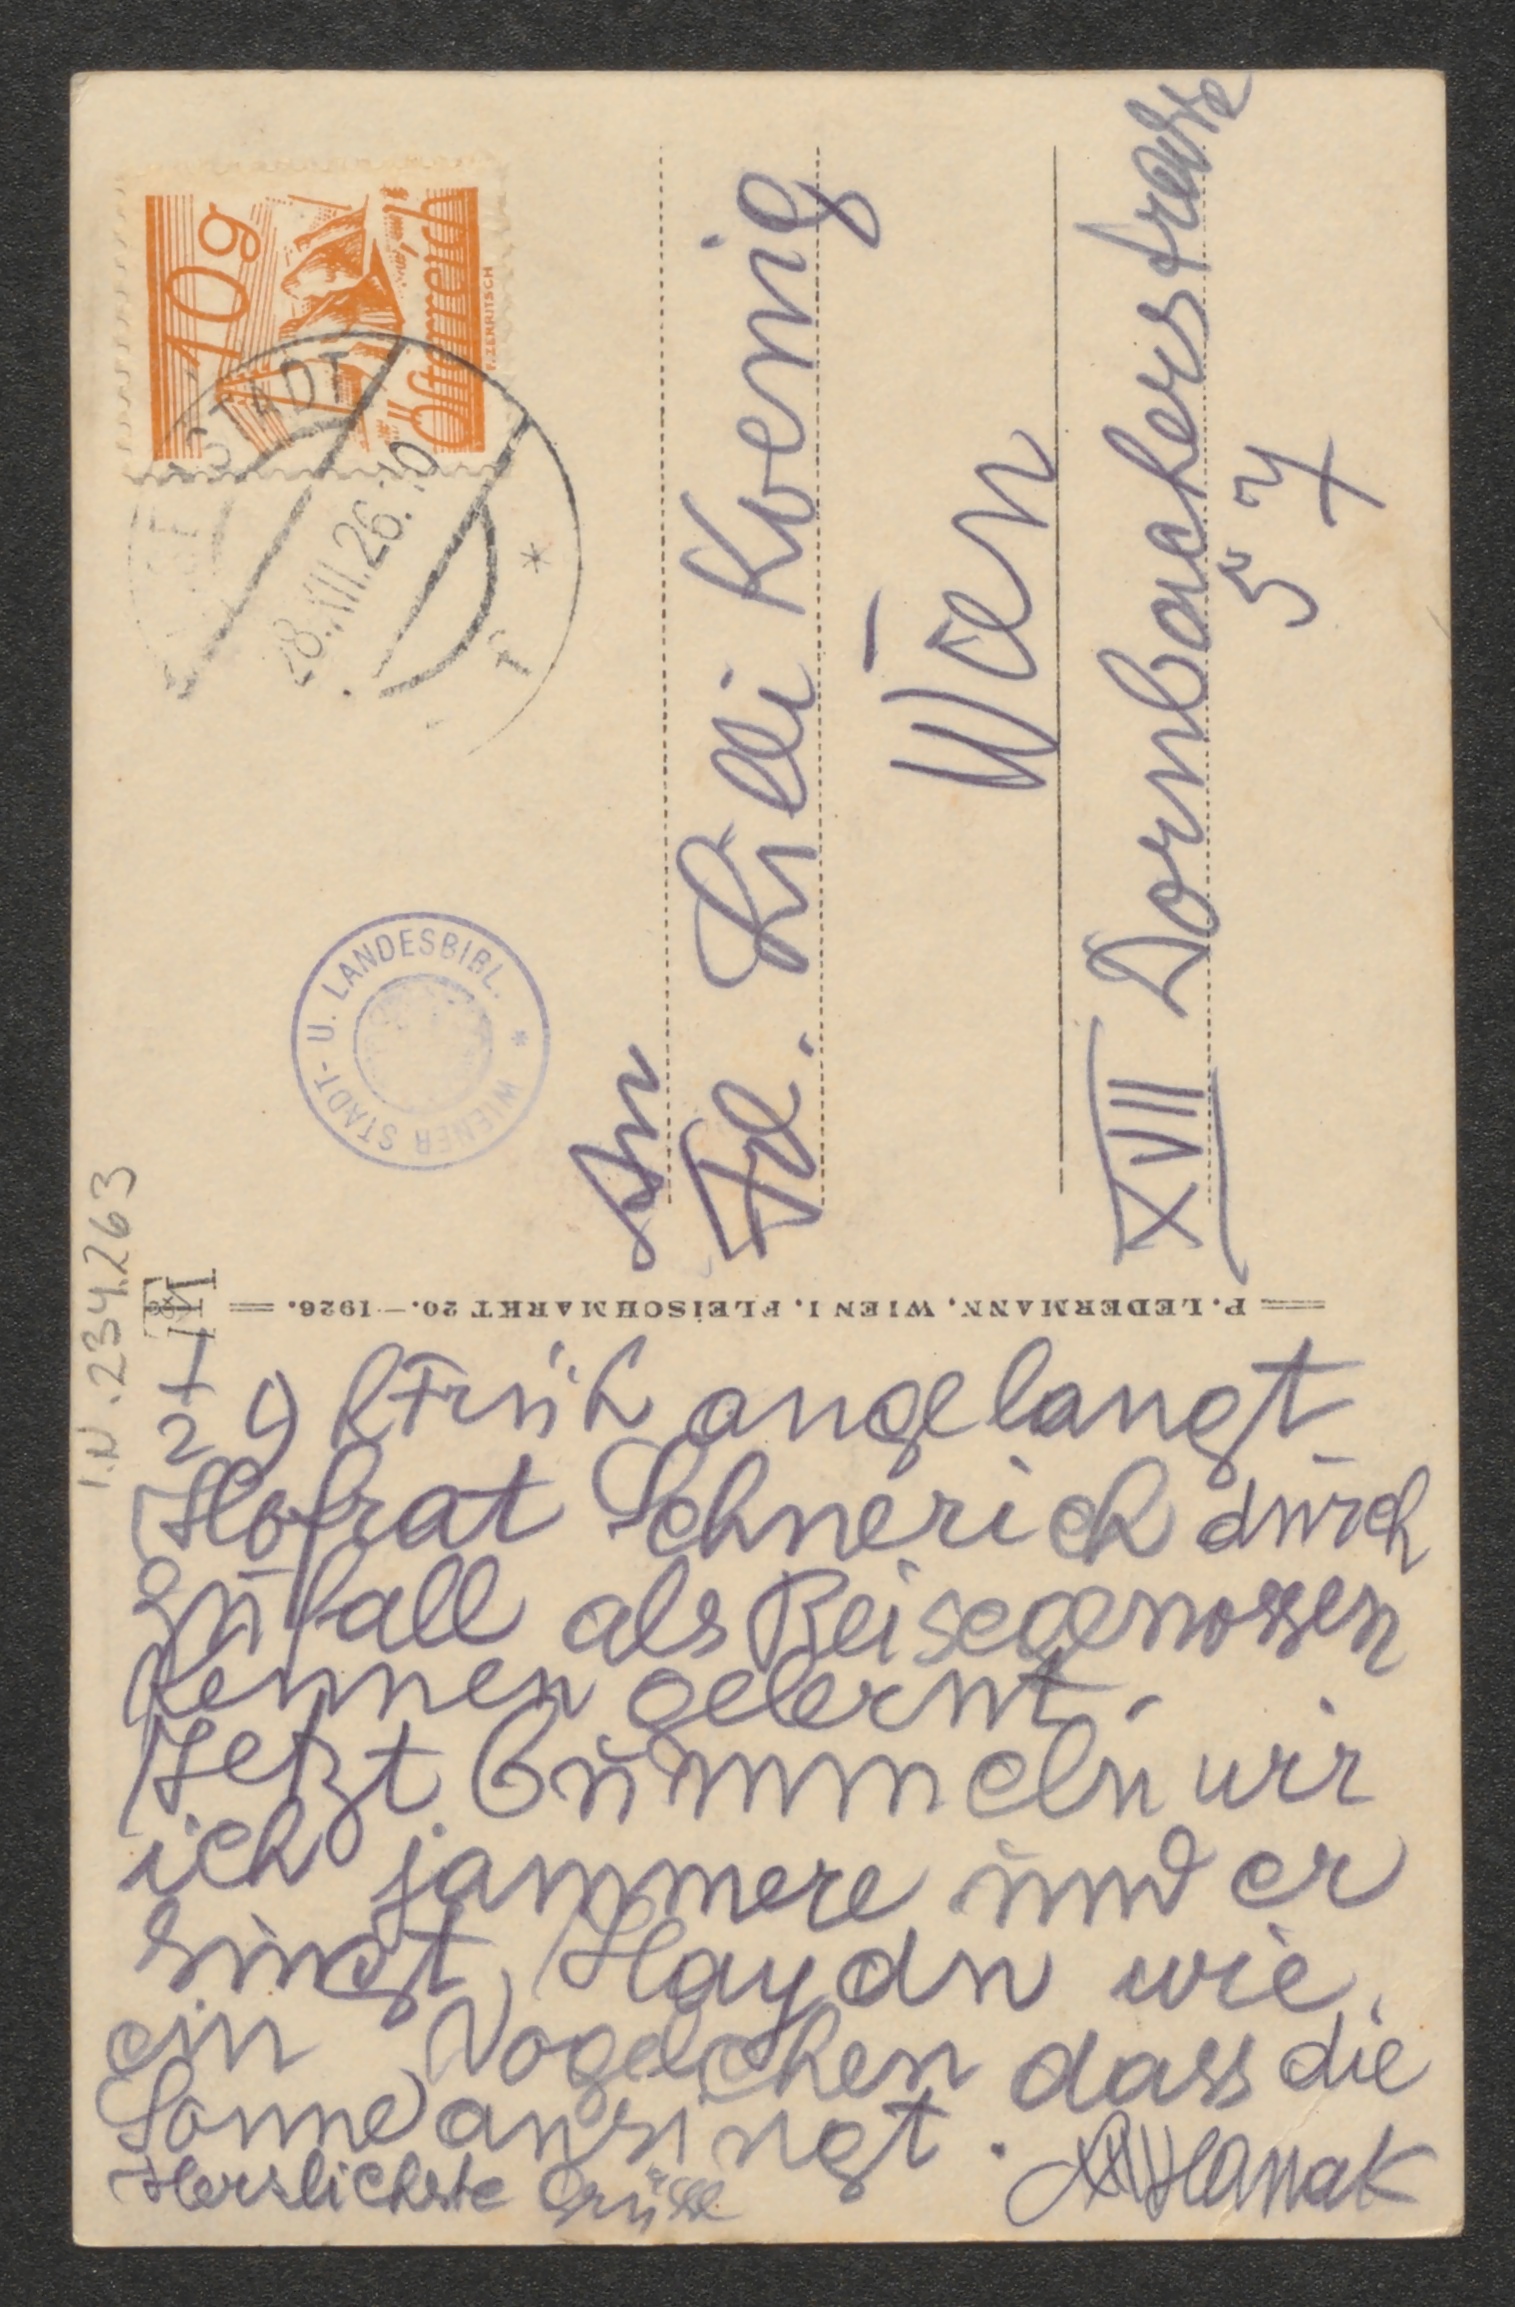 I.N. 234.263
9h Früh angelangt
Hofrat Schnerich durch
Zufall als Reisegenossen
kennen gelernt.
Jetzt bummeln wir
ich jammere und er
singt Haydn wie
ein Vogelchen dass die
Sonne ansingt.
Herzlichste Grüsse
AHanak
P. LEDERMANN, WIEN I, FLEISCHMARKT 20. — 1926.
WIENER STADT- U. LANDESBIBL.
10g
Österreich
STADT
28.XII.26.10
An
Frl. Lilli Koenig
Wien
XVII Dornbacherstrasse
57